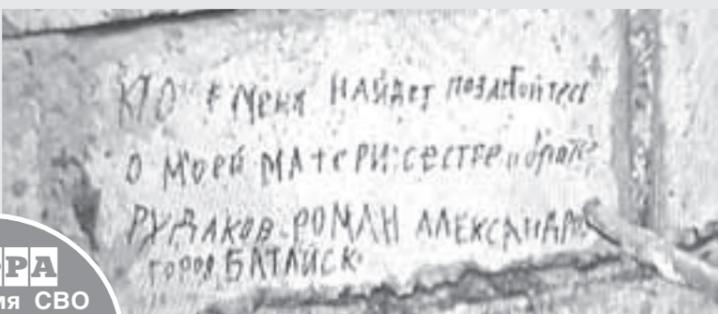 КТО МЕНЯ НАЙДЕТ ПОЗАБОЙТЕСЬ
О МОЕЙ МАТЕРИ. СЕСТРЕ и брате
РУДАКОВ РОМАН АЛЕКСАНДРО
ГОРОД БАТАЙСК
РА
ия СВО